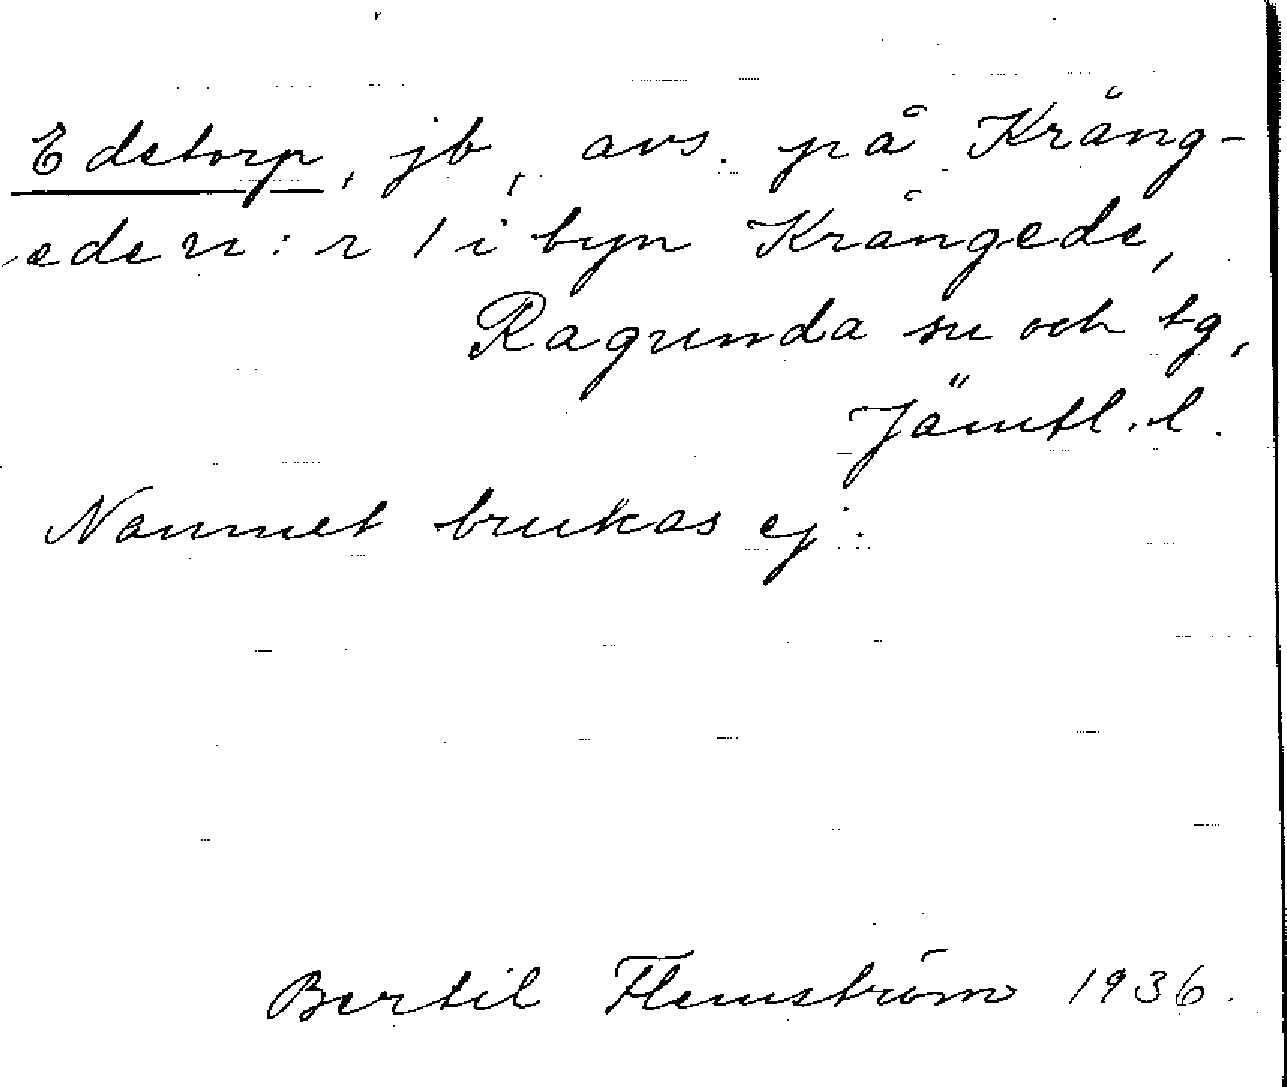 Edetorp, jb, avs. på Krång-
ede n:r 1 i byn Krångede,
Ragunda sn och tg,
Jämtl. l.
Namnet brukas ej.
Bertil Flemström 1936.